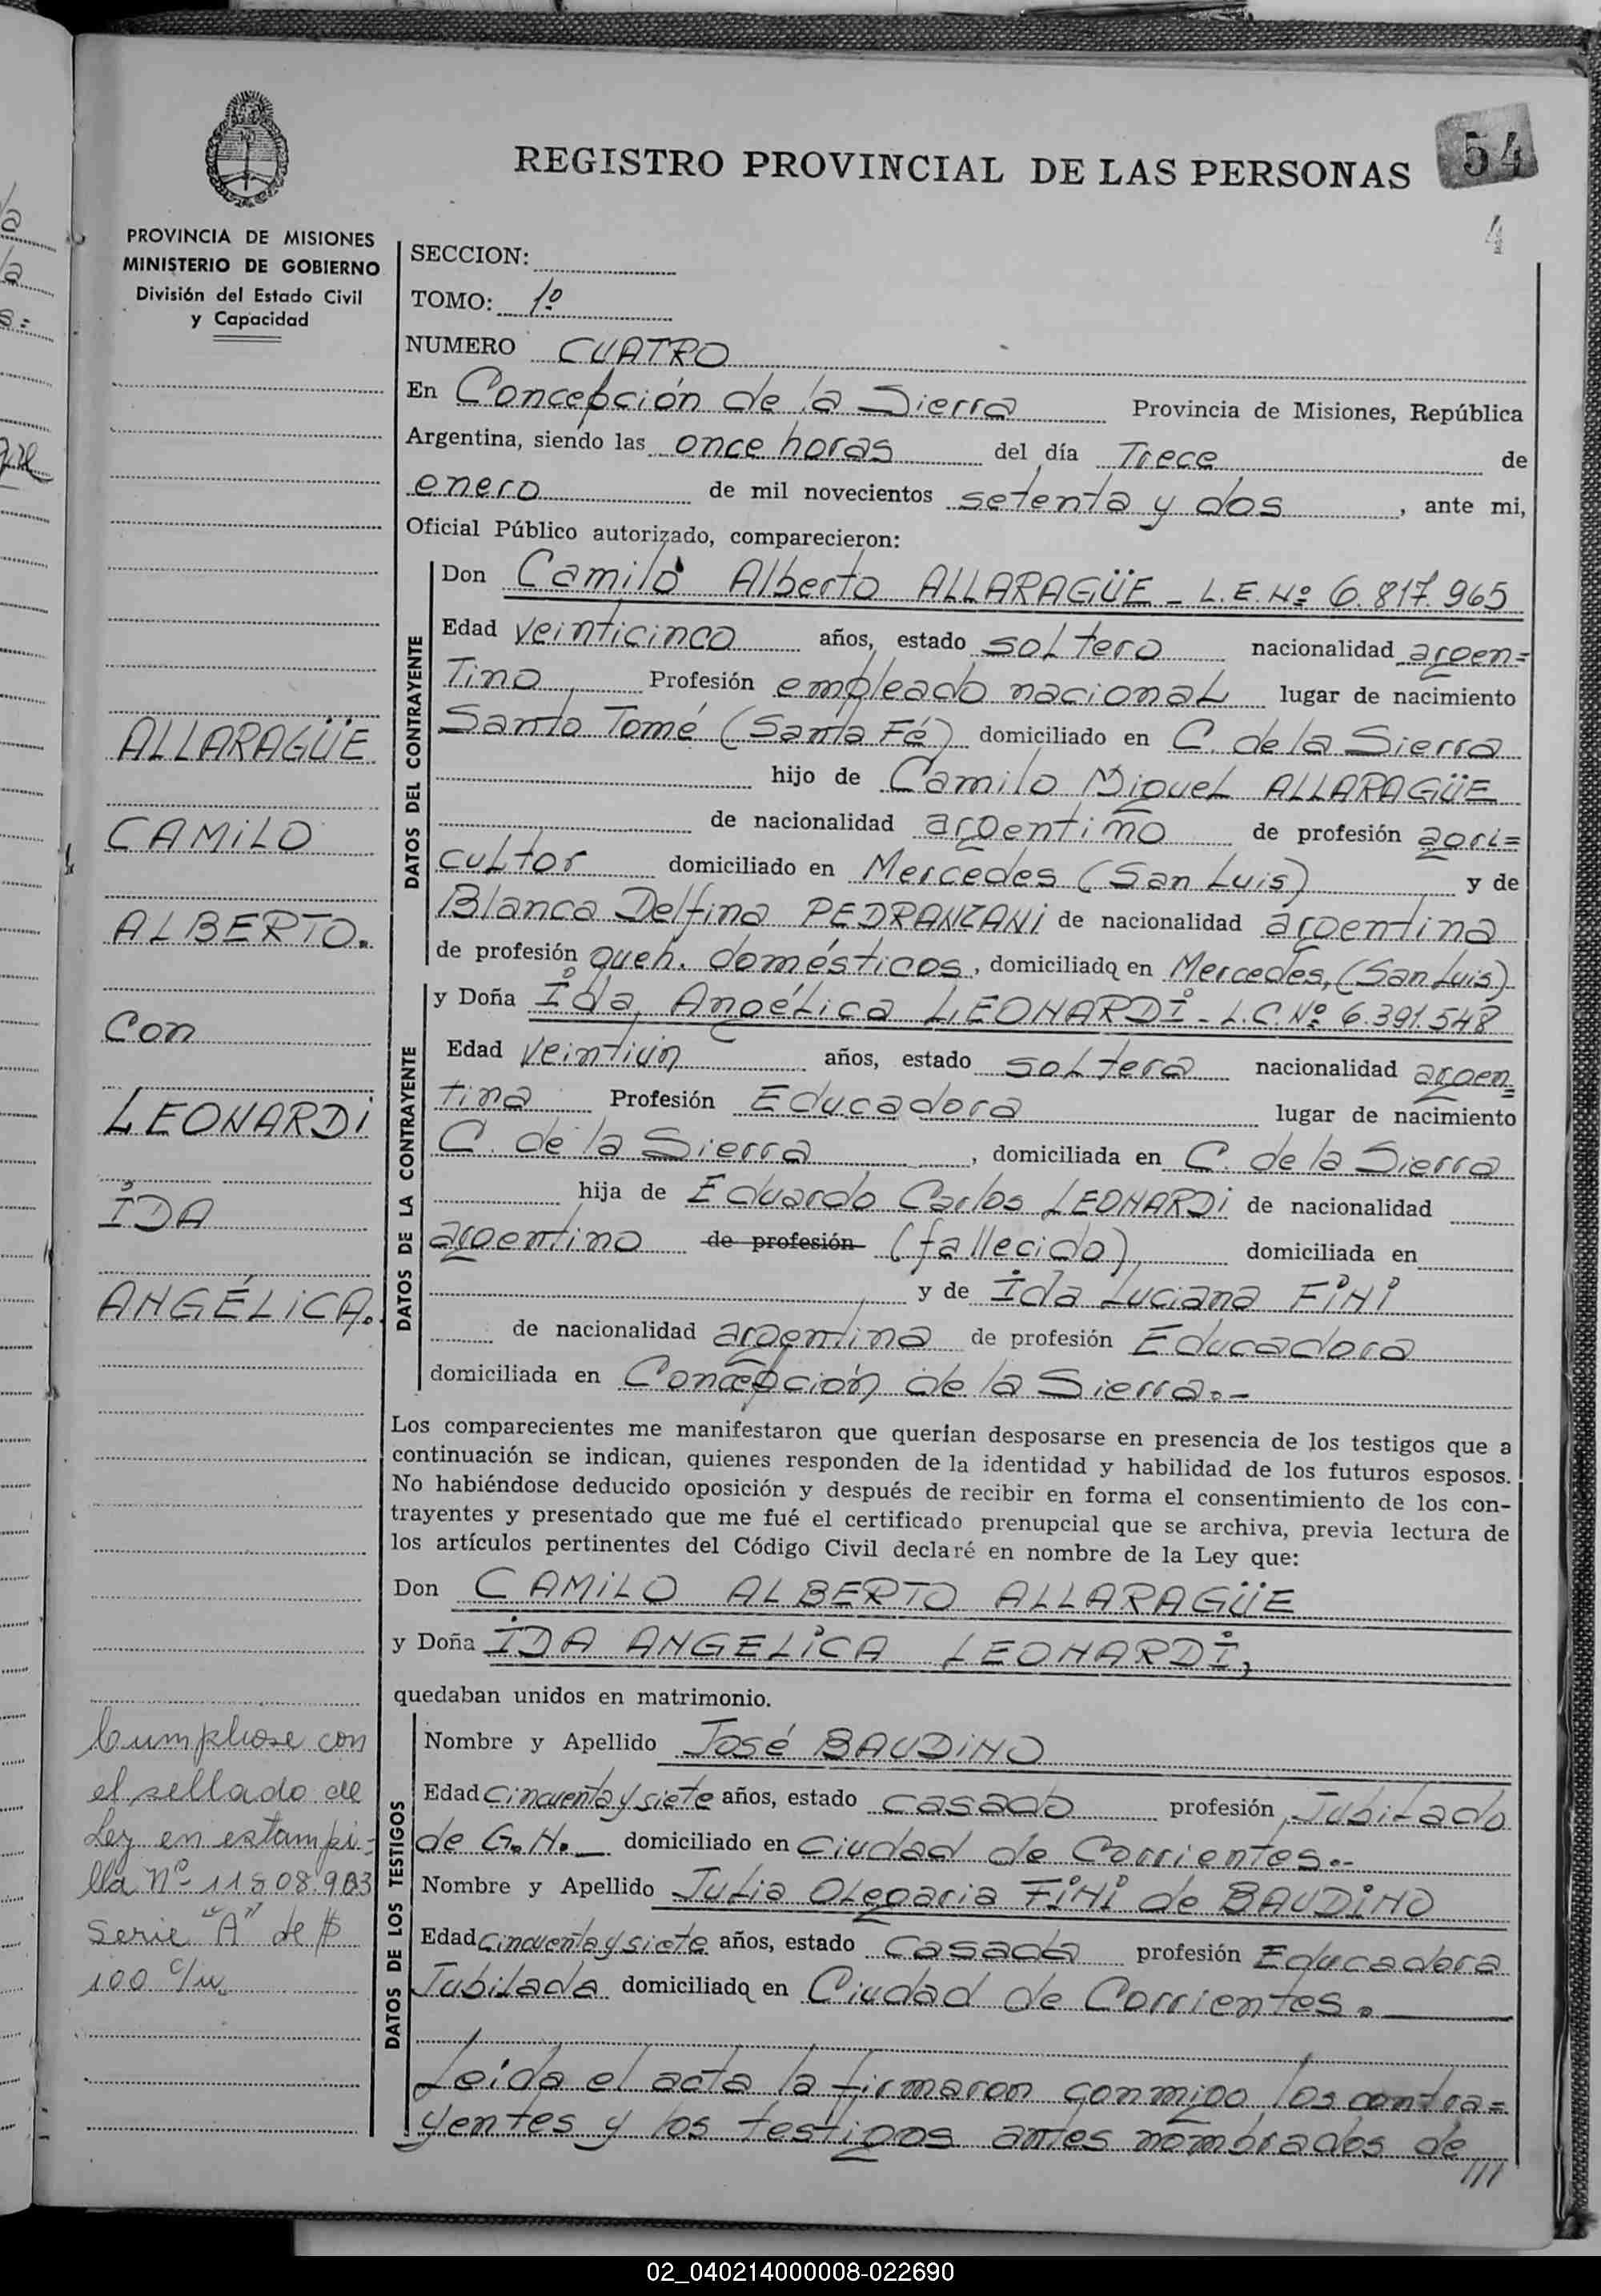 REGISTRO PROVINCIAL DE LAS PERSONAS
54
4
PROVINCIA DE MISIONES
MINISTERIO DE GOBIERNO
División del Estado Civil
y Capacidad
SECCION:
TOMO: 1º
NUMERO CUATRO
En Concepción de la Sierra Provincia de Misiones, República
Argentina, siendo las once horas del día Trece de
enero de mil novecientos setenta y dos, ante mi,
Oficial Público autorizado, comparecieron:
DATOS DEL CONTRAYENTE
Don Camilo Alberto ALLARAGÜE - L.E. Nº 6.817.965
Edad veinticinco años, estado soltero nacionalidad argen=
tino Profesión empleado nacional lugar de nacimiento
Santo Tomé (Santa Fé) domiciliado en C. de la Sierra
hijo de Camilo Miguel ALLARAGÜE
de nacionalidad argentino de profesión agri=
cultor domiciliado en Mercedes (San Luis) y de
Blanca Delfina PEDRANZANi de nacionalidad argentina
de profesión queh. domésticos, domiciliada en Mercedes, (San Luis)
DATOS DE LA CONTRAYENTE
y Doña Ida Angélica LEONARDI - L.C. Nº 6.391.548
Edad veintiún años, estado soltera nacionalidad argen=
tina Profesión Educadora lugar de nacimiento
C. de la Sierra, domiciliada en C. de la Sierra
hija de Eduardo Carlos LEONARDi de nacionalidad
argentino de profesión (fallecido) domiciliada en
y de Ida Luciana FiNi
de nacionalidad argentina de profesión Educadora
domiciliada en Concepción de la Sierra.-
ALLARAGÜE
CAMiLO
ALBERTO.
Con
LEONARDi
IDA
ANGÉLiCA.
Los comparecientes me manifestaron que querían desposarse en presencia de los testigos que a
continuación se indican, quienes responden de la identidad y habilidad de los futuros esposos.
No habiéndose deducido oposición y después de recibir en forma el consentimiento de los con-
trayentes y presentado que me fué el certificado prenupcial que se archiva, previa lectura de
los artículos pertinentes del Código Civil declaré en nombre de la Ley que:
Don CAMiLO ALBERTO ALLARAGÜE
y Doña IDA ANGELiCA LEONARDI,
quedaban unidos en matrimonio.
DATOS DE LOS TESTIGOS
Nombre y Apellido José BAUDiNO
Edad cincuenta y siete años, estado casado profesión Jubilado
de G.N.- domiciliado en Ciudad de Corrientes.-
Nombre y Apellido Julia Olegaria FiNi de BAUDiNO
Edad cincuenta y siete años, estado casada profesión Educadora
Jubilada domiciliada en Ciudad de Corrientes.
Leida el acta la firmaron conmigo los contra=
yentes y los testigos antes nombrados de
///
Cumpliose con
el sellado de
Ley en estampi-
lla Nº
Serie "A" de $
100 c/u.
02_040214000008-022690